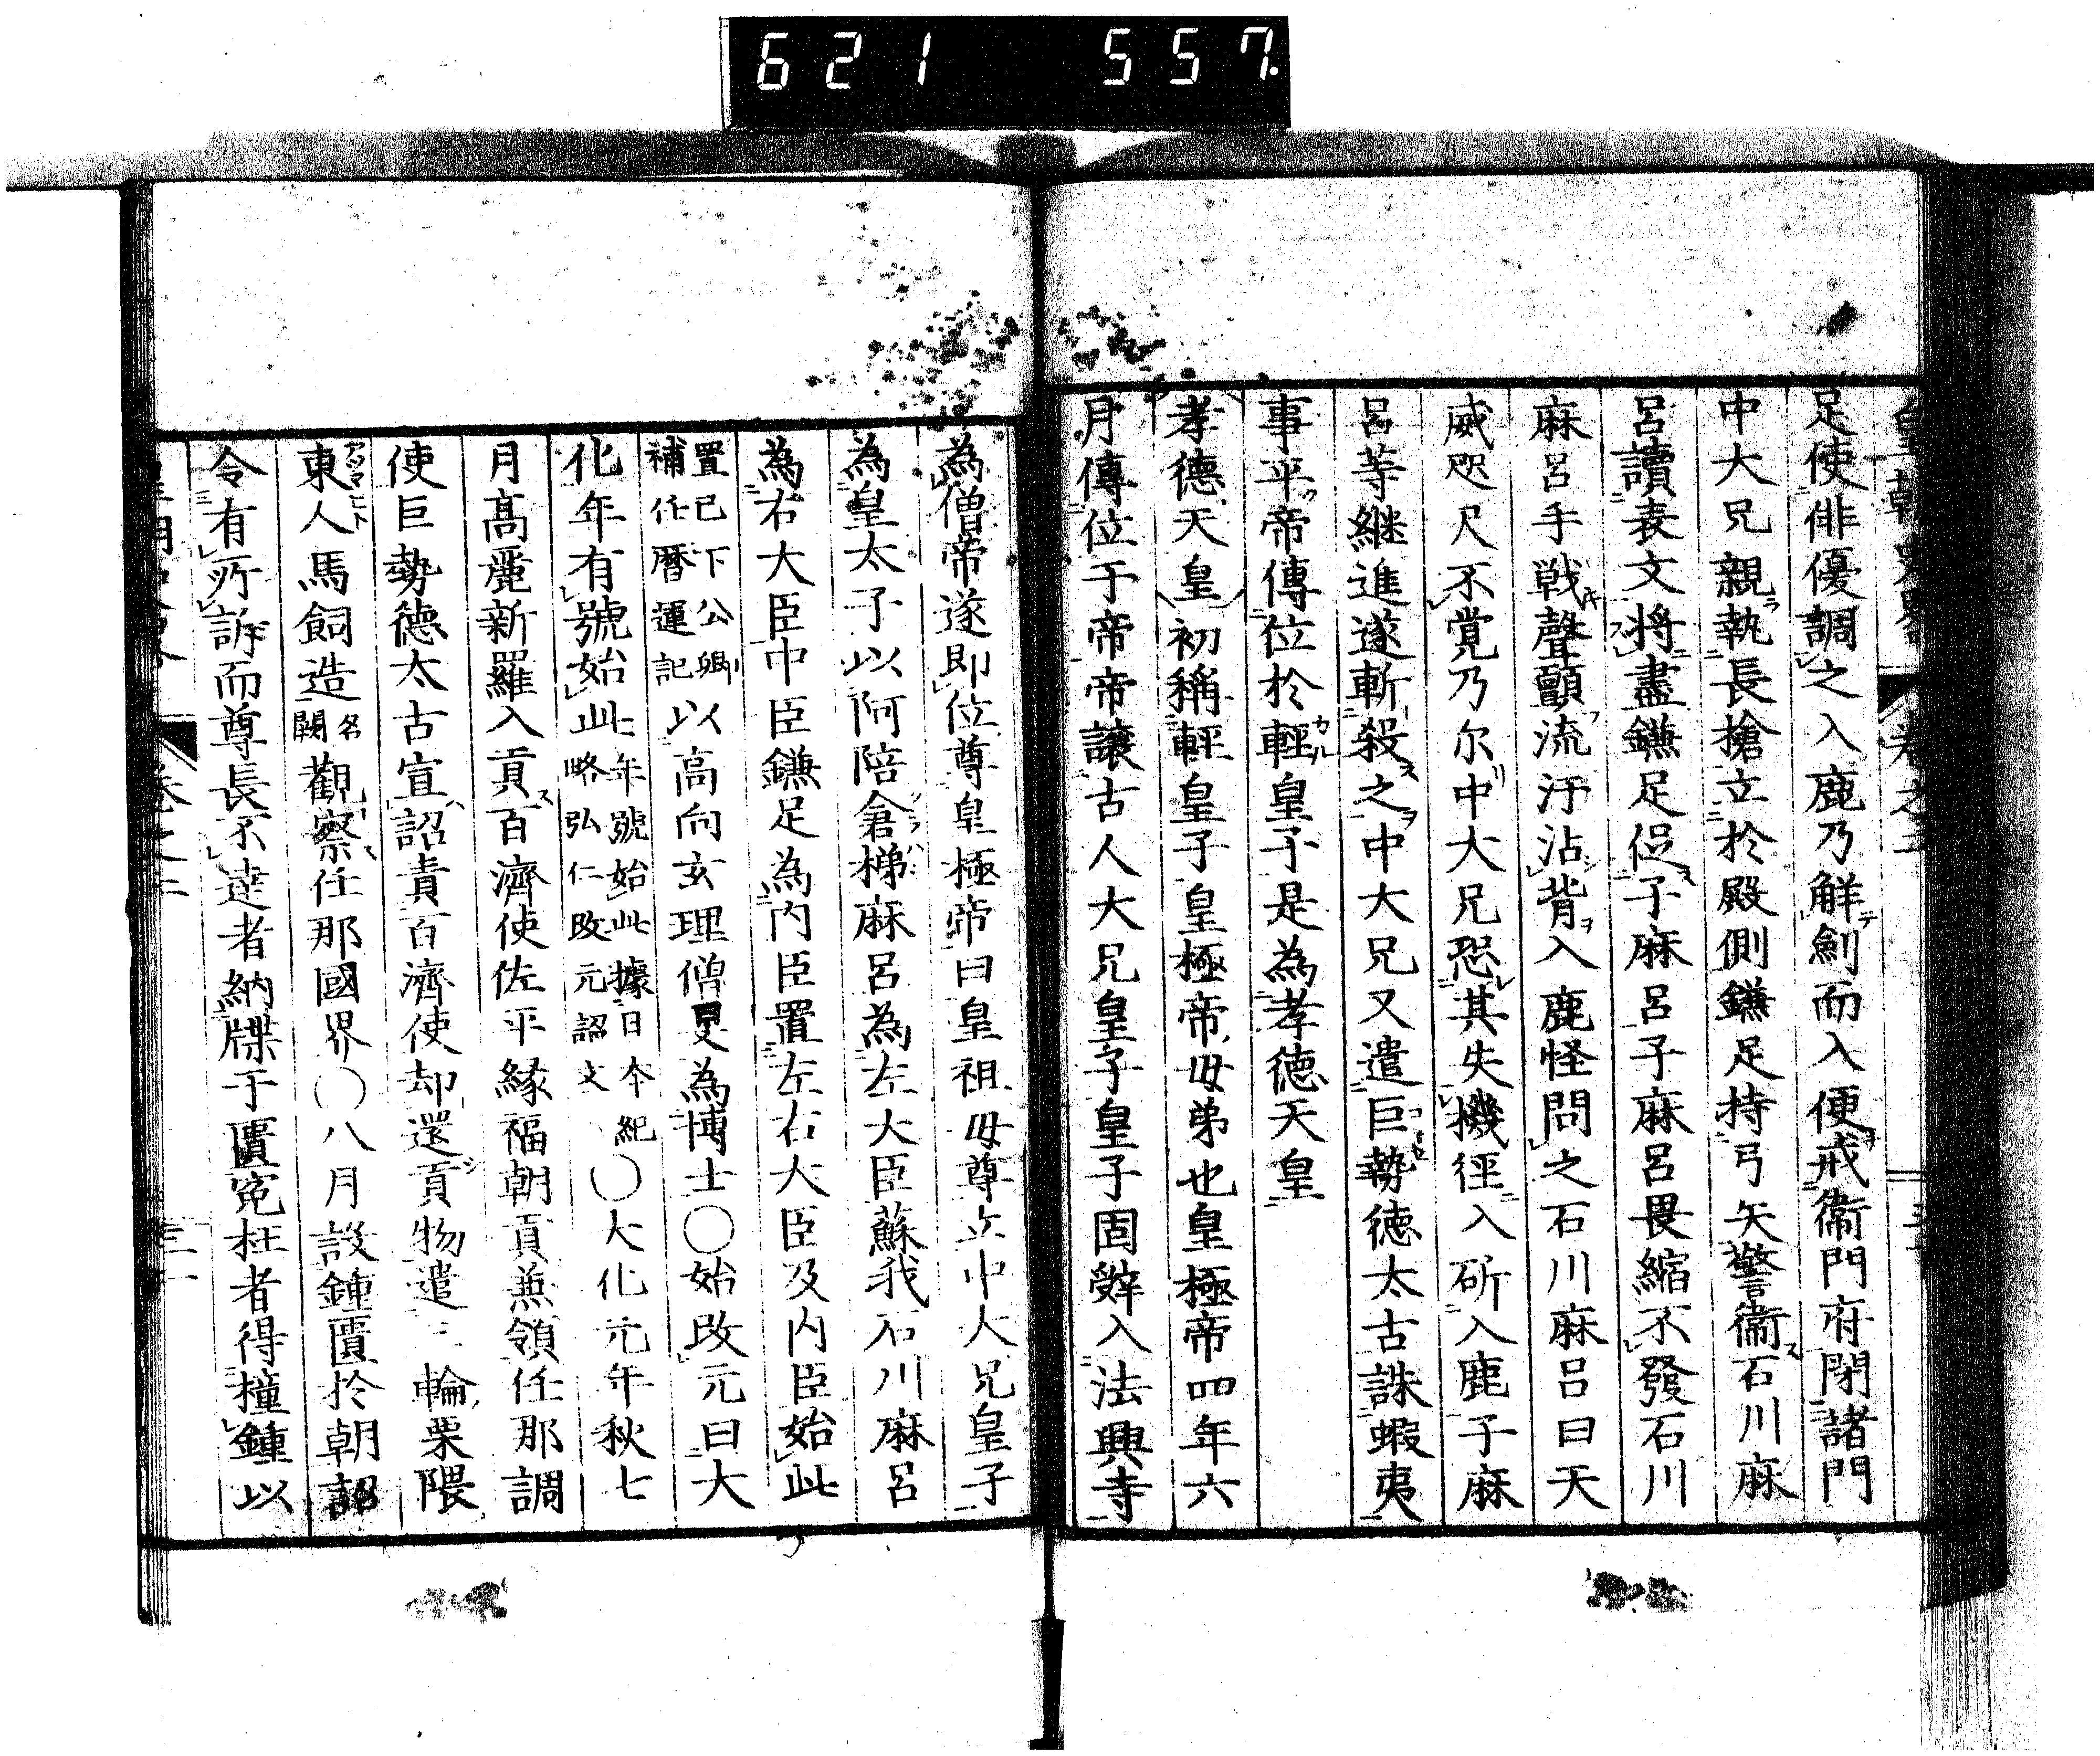 621 557
足使俳優調之入鹿乃解劍而入便戒衞門府閉諸門
中大兄親執長槍立於殿側鎌足持弓矢警衞石川麻
呂讀表文將盡鎌足促子麻呂子麻呂畏縮不發石川
麻呂手戰聲顫流汗沾背入鹿怪問之石川麻呂曰天
威咫尺不覚乃尔中大兄恐其失機徑入斫入鹿子麻
呂等継進遂斬殺之中大兄又遣巨勢徳太古誅蝦夷
事平帝傳位於輕皇子是為孝徳天皇
孝徳天皇初稱輕皇子皇極帝母弟也皇極帝四年六
月傳位于帝帝譲古人大兄皇子皇子固辭入法興寺
為僧帝遂即位尊皇極帝曰皇祖母尊立中大兄皇子
為皇太子以阿陪倉梯麻呂為左大臣蘇我石川麻呂
為右大臣中臣鎌足為内臣置左右大臣及内臣始此
置已下公卿補任暦運記以高向玄理僧旻為博士〇始改元曰大
化年有號始此年號始此據日本紀略弘仁改元詔文〇大化元年秋七
月高麗新羅入貢百濟使佐平縁福朝貢兼領任那調
使巨勢徳太古宣詔責百濟使却還貢物遣三輪栗隈
東人馬飼造名闕觀察任那國界〇八月設鍾匱於朝詔
令有所訴而尊長不達者納牒于匱冤枉者得撞鍾以